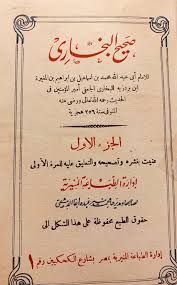 صحيح البخاري
للإمام أبي عبد الله محمد بن اسماعيل بن ابراهيم بن المغيرة
ابن بردزبه البخاري الجعفي أمير المؤمنين في
الحديث رحمه الله تعالى ورضي عنه
المتوفى سنة ٢٥٦ هجرية
الجزء الأول
عنيت بنشره وتصحيحه والتعليق عليه للمرة الأولى
إدارة الطباعة المنيرية
حقوق الطبع محفوظة على هذا الشكل الى
إدارة الطباعة المنيرية بمصر بشارع الكحكيين رقم ١